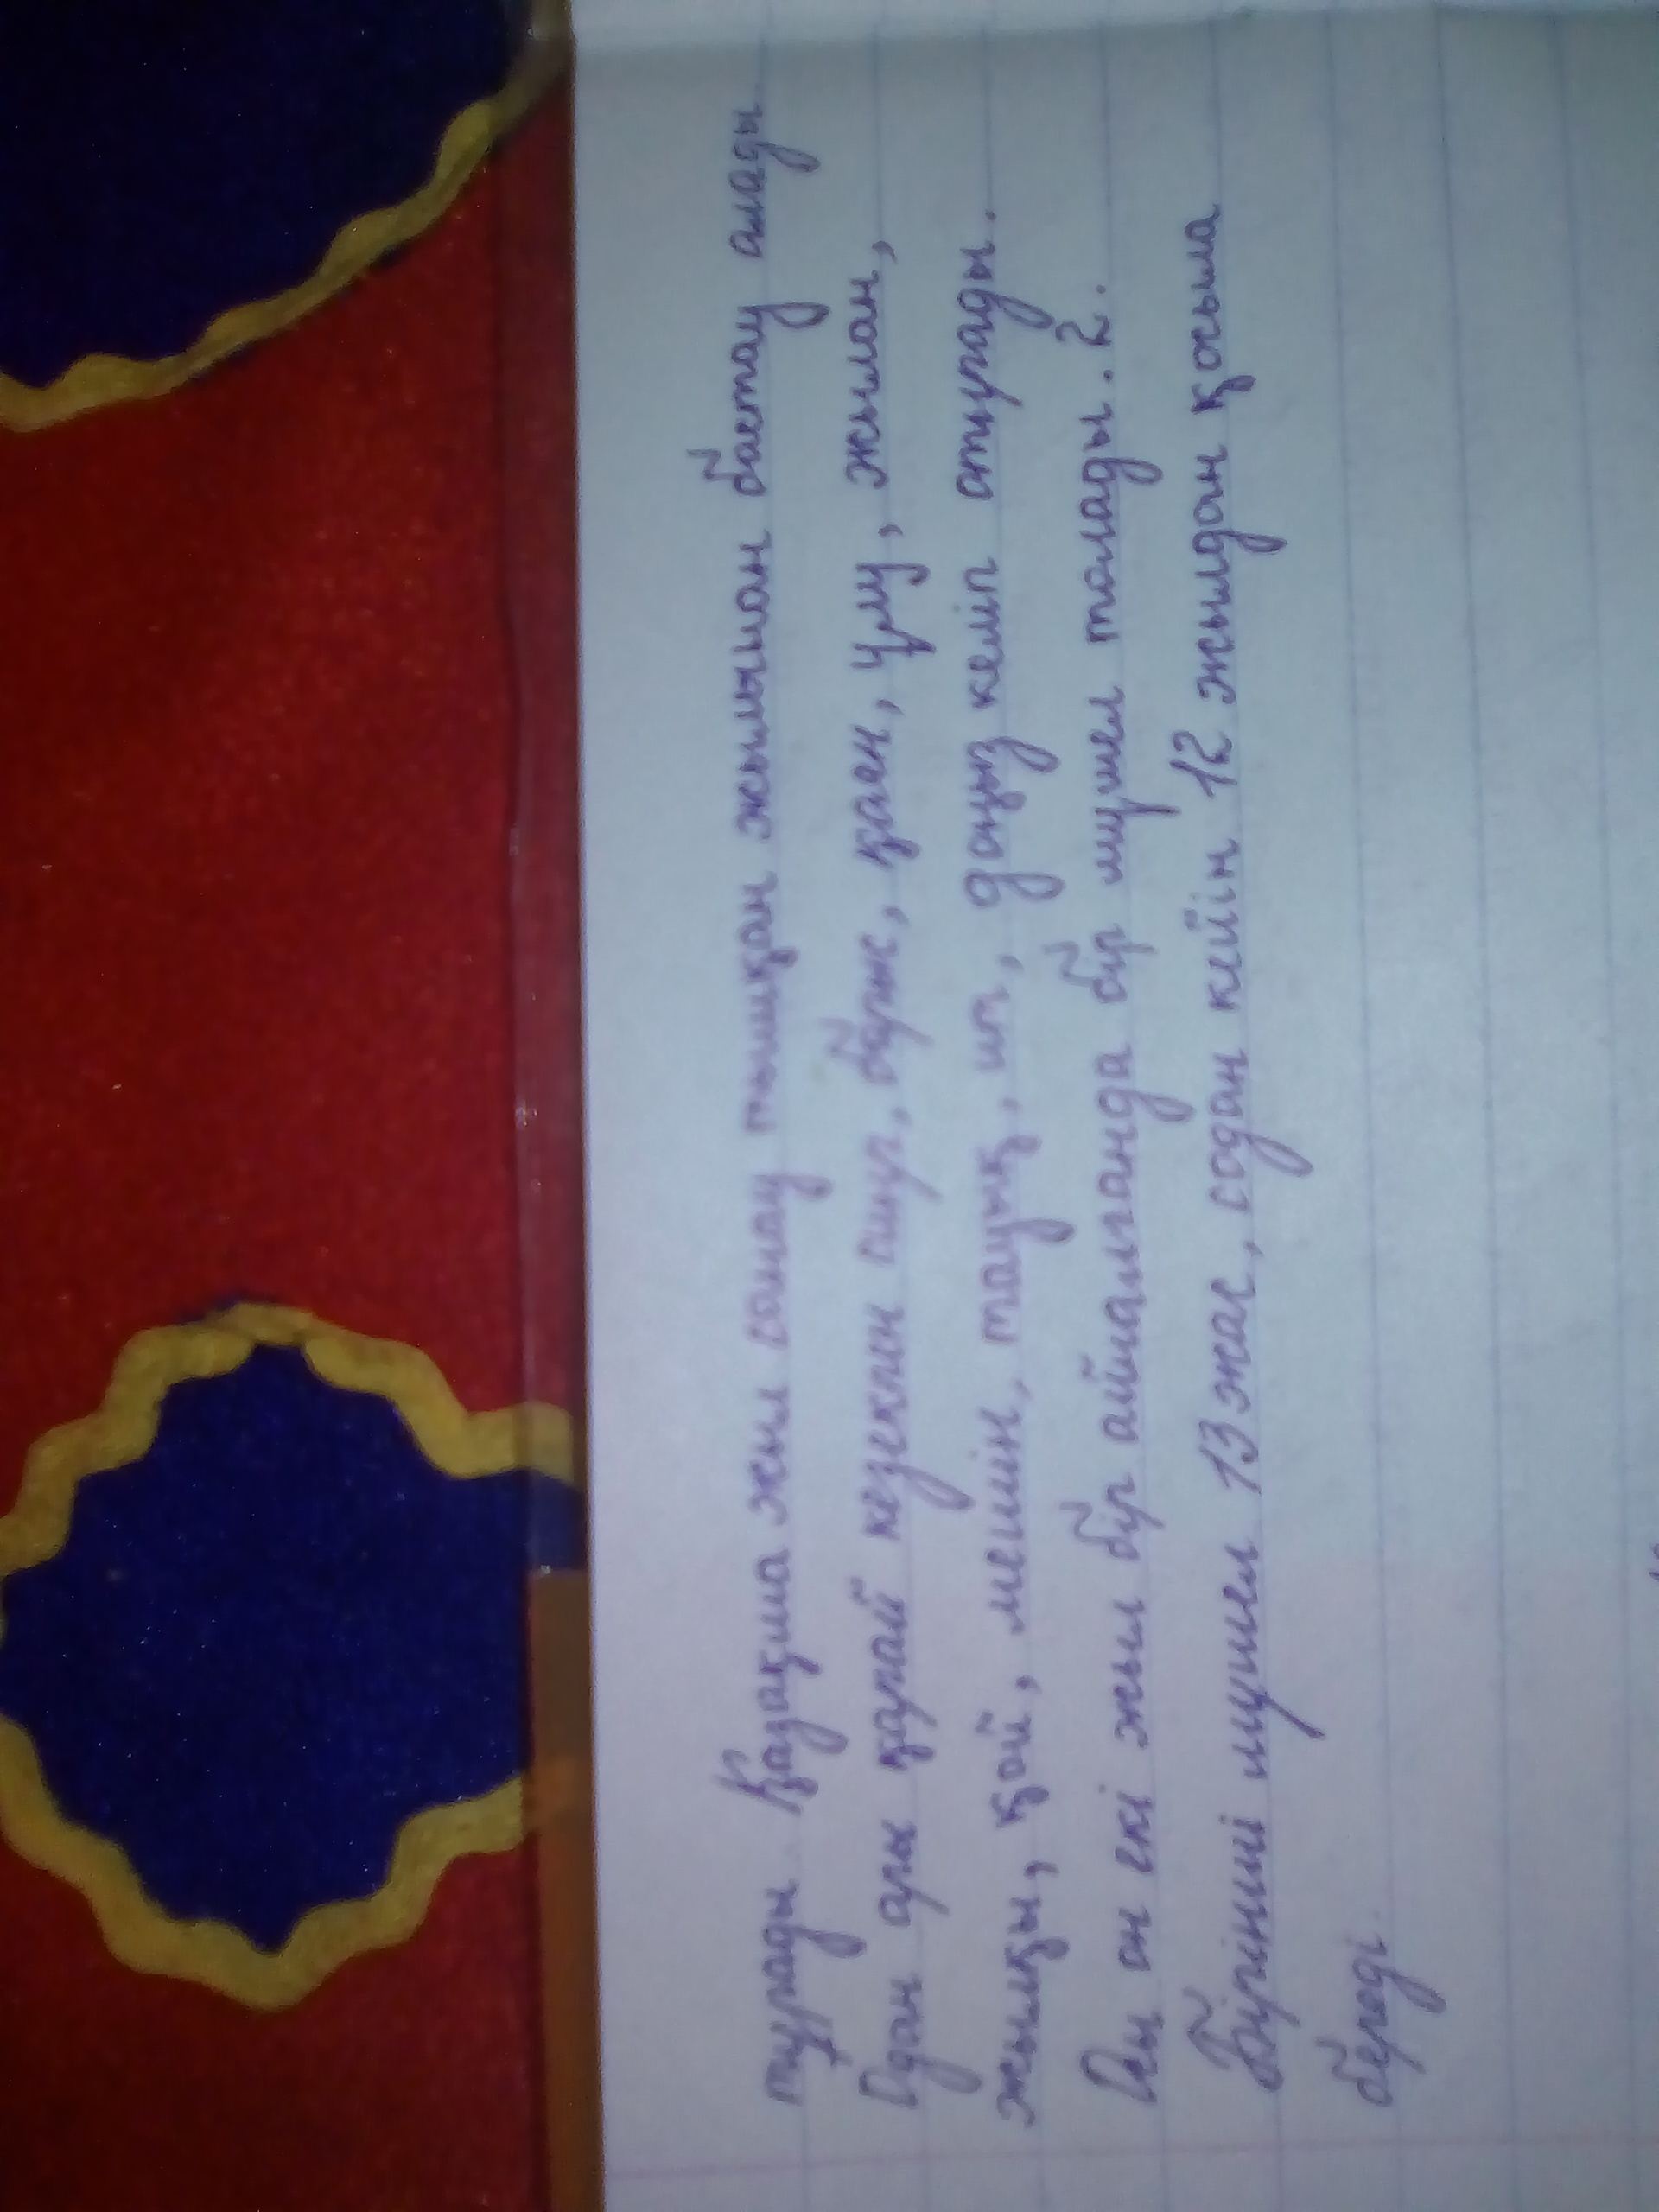 тұрады. Қазақша жыл санау тышқан жылынан бастау алады
Одан ары қарай кезекпен сиыр, барыс, қоян, ұлу, жылан,
жылқы, қой, мешін, тауық, ит, доңыз келіп отырады.
Осы он екі жыл бір айналғанда бір мүшел толады. 2.
Бірінші мүшел 13 жас, содан кейін 12 жылдан қосыла
береді.